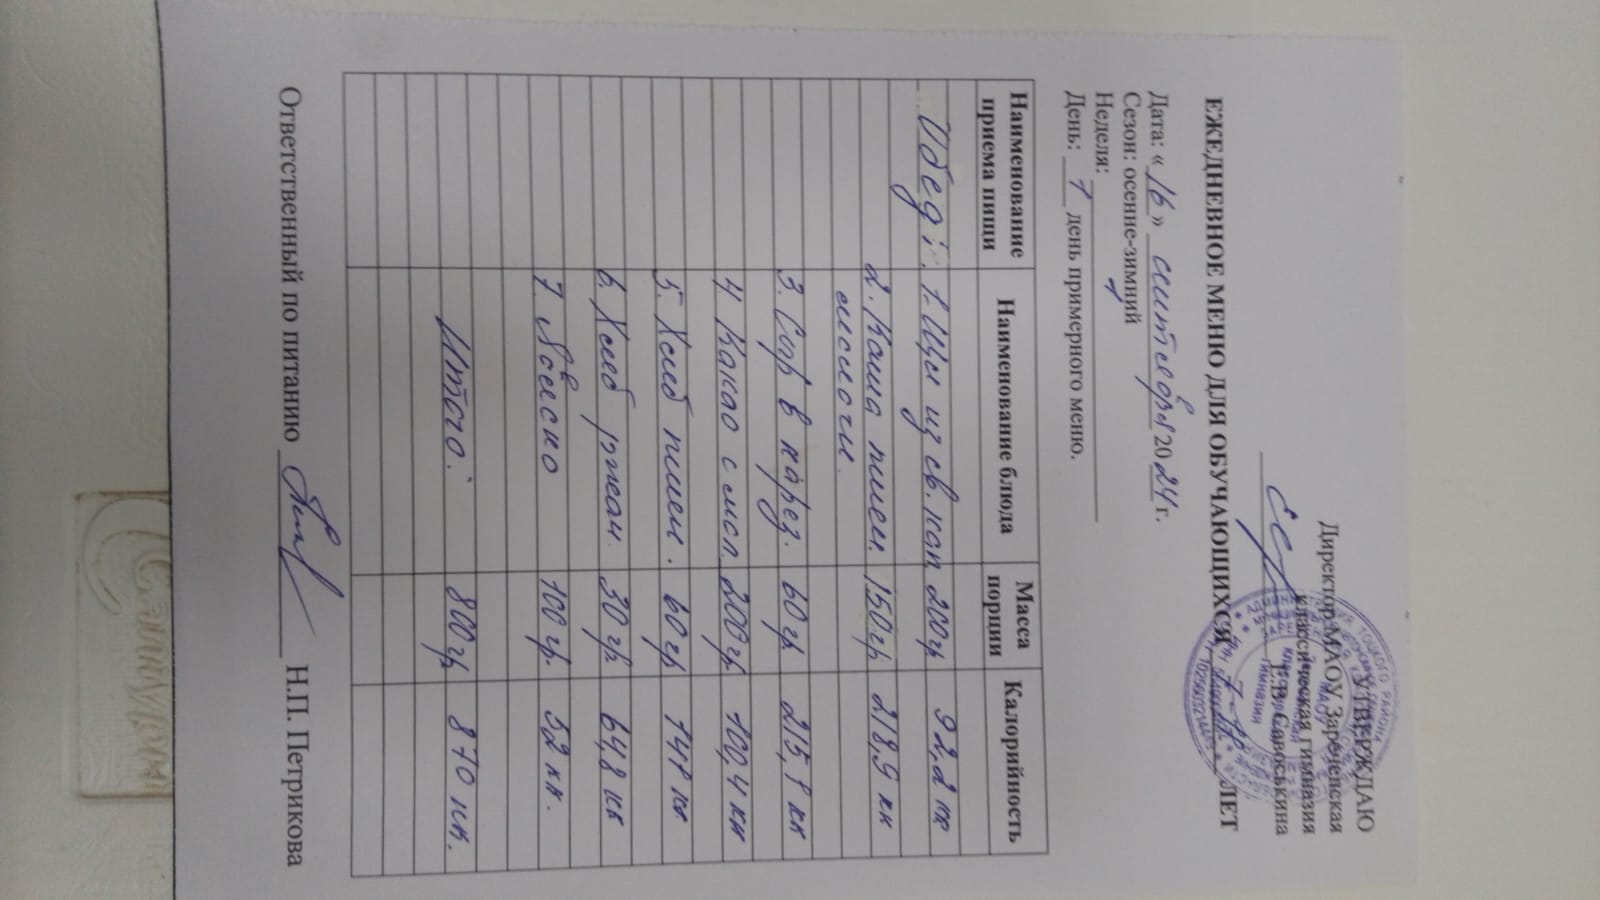 УТВЕРЖДАЮ
Директор МАОУ Зареченская
классическая гимназия
Е.В. Савоськина
ЕЖЕДНЕВНОЕ МЕНЮ ДЛЯ ОБУЧАЮЩИХСЯ 7-11 ЛЕТ
Дата: «16» сентября 2024 г.
Сезон: осенне-зимний
Неделя: 1
День: 1 день примерного меню.
Наименование приема пищи Наименование блюда Масса порции Калорийность
Обед: 1. Щи из св. кап 200гр 92,2 кк
2. Каша пшен. 150гр 218,9 кк
3. Сыр в нарез. 60гр 215,8 кк
4 Какао с мол. 200гр 100,4 кк
5. Хлеб пшен. 60гр 148 кк
6. Хлеб ржан. 30гр. 64,8 кк
7. Яблоко 100гр. 52 кк.
Итого: 800гр 870 кк.
Ответственный по питанию Н.П. Петрикова